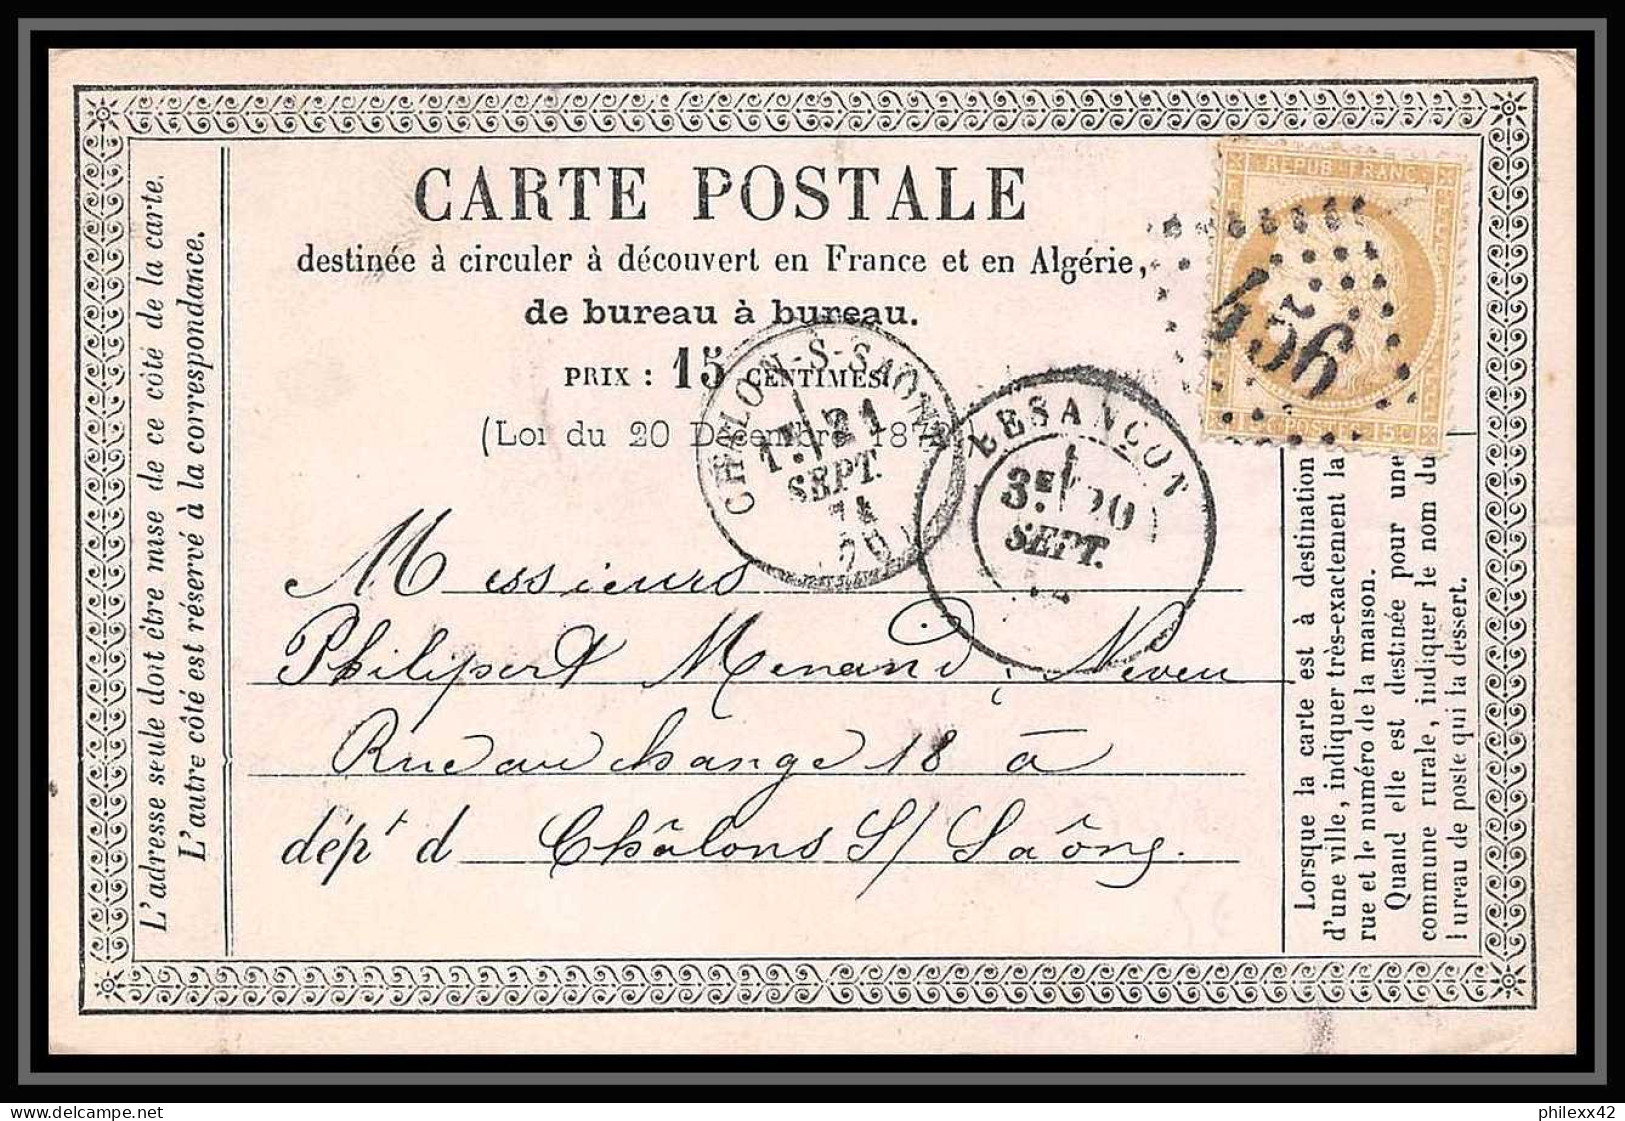 CARTE POSTALE
destinée à circuler à découvert en France et en Algérie,
de bureau à bureau.
PRIX : 15 CENTIMES.
(Loi du 20 Décembre 1872)
REPUB. FRANC.
456
POSTES 15 C
CHALON-S-SAONE
1E 21
SEPT.
74
BESANÇON
3E 20
SEPT.
Messieurs
Philipert Menand, Neveu
Rue au change 18 à
dépt d Châlons S/ Saône.
L'adresse seule doit être mise de ce côté de la carte.
L'autre côté est réservé à la correspondance.
Lorsque la carte est à destination
d'une ville, indiquer très-exactement la
rue et le numéro de la maison.
Quand elle est destinée pour une
commune rurale, indiquer le nom du
bureau de poste qui la dessert.
philexx42